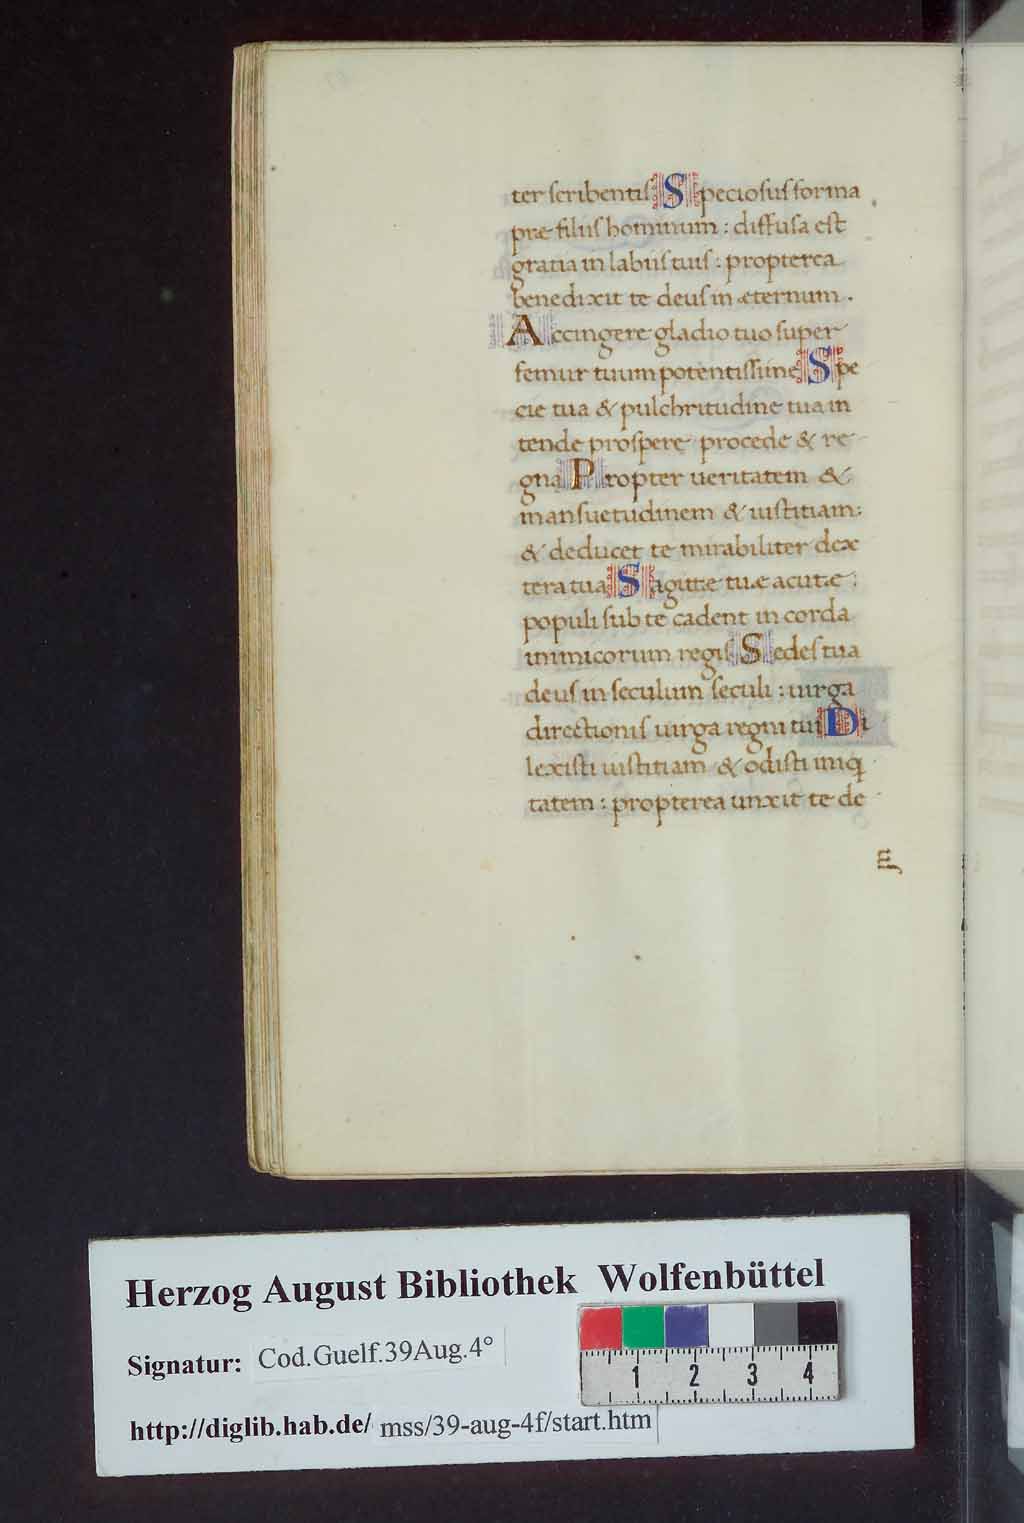 ter scribentis Speciosus forma
præ filiis hominum : diffusa est
gratia in labiis tuis : propterea
benedixit te deus in æternum .
Accingere gladio tuo super
femur tuum potentissime Spe
cie tua & pulchritudine tua in
tende prospere procede & re
gna Propter ueritatem &
mansuetudinem & iustitiam:
& deducet te mirabiliter dex
tera tua Sagittæ tuæ acutæ :
populi sub te cadent in corda
inimicorum regis Sedes tua
deus in seculum seculi : uirga
directionis uirga regni tui Di
lexisti iustitiam & odisti iniq
tatem : propterea unxit te de
Herzog August Bibliothek Wolfenbüttel
Signatur: Cod.Guelf.39Aug.4°
http://diglib.hab.de/ mss/39-aug-4f/start.htm
1 2 3 4